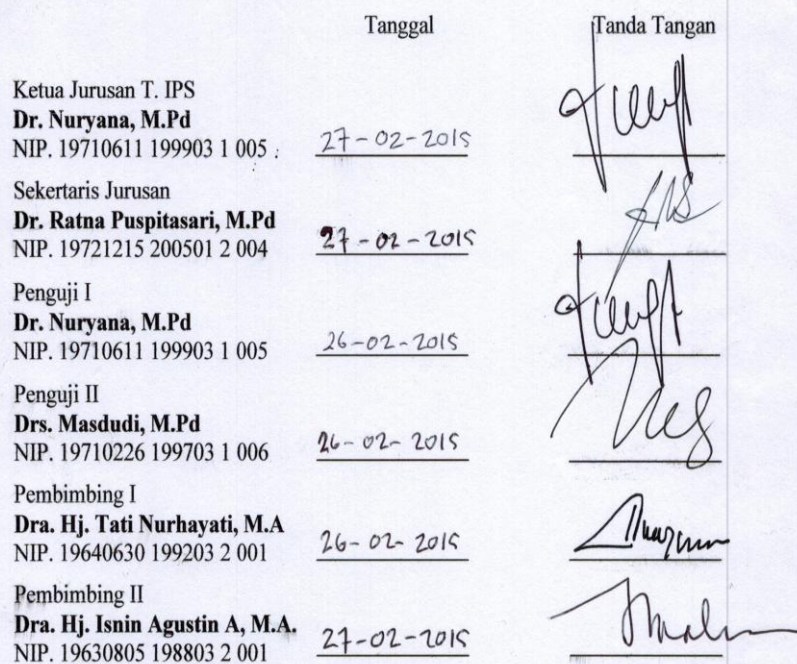 Tanggal Tanda Tangan
Ketua Jurusan T. IPS
Dr. Nuryana, M.Pd
NIP. 19710611 199903 1 005 27-02-2015
Sekertaris Jurusan
Dr. Ratna Puspitasari, M.Pd
NIP. 19721215 200501 2 004 27-02-2015
Penguji I
Dr. Nuryana, M.Pd
NIP. 19710611 199903 1 005 26-02-2015
Penguji II
Drs. Masdudi, M.Pd
NIP. 19710226 199703 1 006 26-02-2015
Pembimbing I
Dra. Hj. Tati Nurhayati, M.A
NIP. 19640630 199203 2 001 26-02-2015
Pembimbing II
Dra. Hj. Isnin Agustin A, M.A.
NIP. 19630805 198803 2 001 27-02-2015